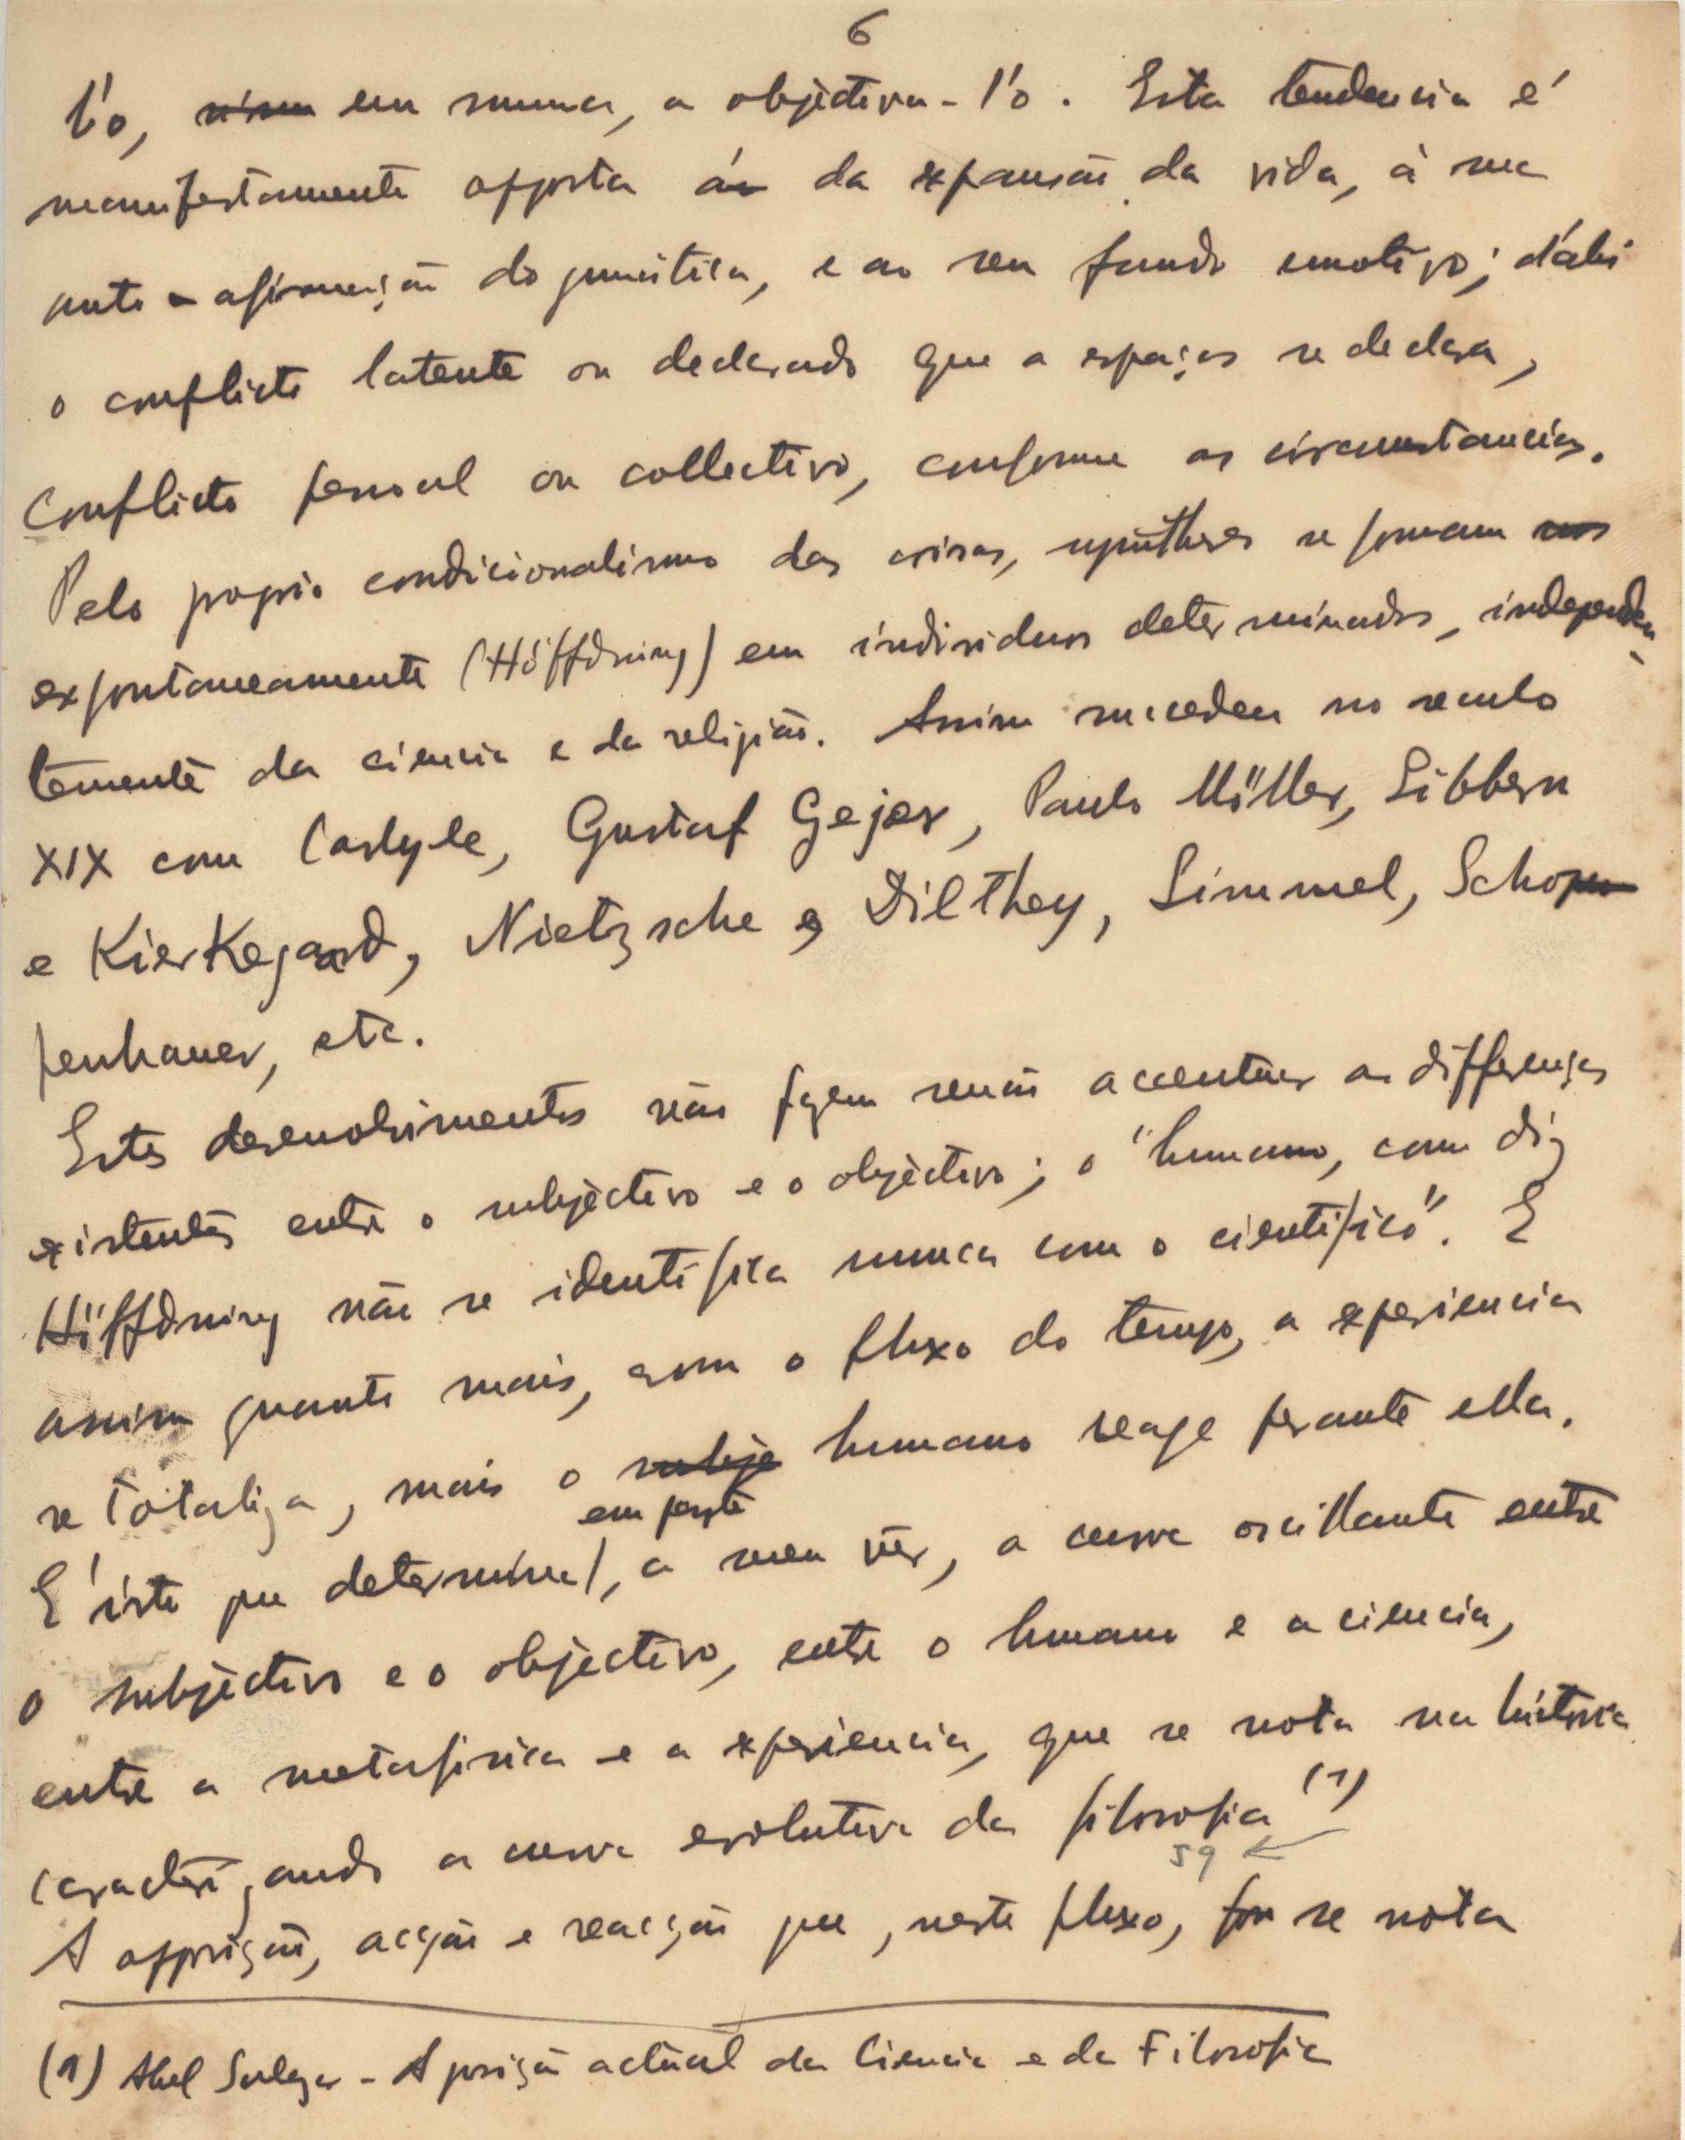 6
l'o, em summa, a objectiva-l'o. Esta tendencia é
manifestamente opposta á da expansão da vida, á sua
auto-afirmação dogmatica, e ao seu fundo emotivo; d'ahi
o conflicto latente ou declarado que a espaços se declara,
conflicto pessoal ou collectivo, conforme as circumstancias.
Pelo proprio condicionalismo das crises, syntheses se formam nos
expontaneamente (Höffdning) em individuos determinados, independen-
temente da ciencia e da religião. Assim succedeu no seculo
XIX com Carlyle, Gustaf Gejer, Paulo Möller, Sibbern
e Kierkegaard, Nietzsche e Dilthey, Simmel, Schopen
penhauer, etc.
Estes desenvolvimentos não fazem senão accentuar as differenças
existentes entre o subjectivo e o objectivo; o "humano, como diz
Höffdning não se identifica nunca com o cientifico". E
assim quanto mais, com o fluxo do tempo, a experiencia
se totaliza, mais o subje humano reage perante ella.
em parte
E' isto que determina, a meu vêr, a curva oscillante entre
o subjectivo e o objectivo, entre o humano e a ciencia,
entre a metafisica e a experiencia, que se nota na historia
caracterizando a curva evolutiva da filosofia (1)
59
A opposição, acção e reacção que, neste fluxo, se nota
(1) Abel Salazar - A posição actual da Ciencia e da Filosofia